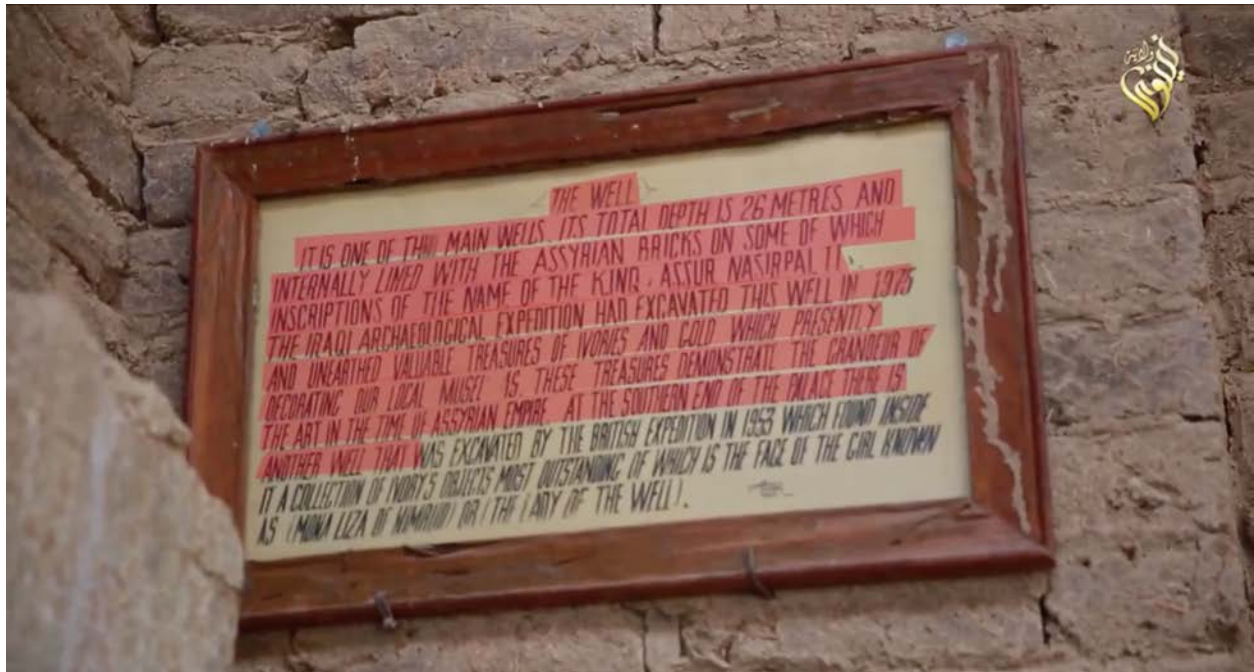 THE WELL
IT IS ONE OF MAIN WELLS. ITS TOTAL DEPTH IS 26 METRES AND
INTERNALLY LINED WITH THE ASSYRIAN BRICKS ON SOME OF WHICH
INSCRIPTIONS OF THE NAME OF THE KING, ASSUR NASIRPAL II.
THE IRAQI ARCHAEOLOGICAL EXPEDITION HAD EXCAVATED THIS WELL IN 1975
AND UNEARTHED VALUABLE TREASURES OF IVORIES AND GOLD WHICH PRESENTLY
DECORATING OUR LOCAL THESE TREASURES DEMONSTRATE THE GRANDEUR OF
THE ART IN THE TIME OF ASSYRIAN EMPIRE AT THE SOUTHERN END OF THE PALACE THERE IS
ANOTHER WELL THAT WAS EXCAVATED BY THE BRITISH EXPEDITION IN 1953 WHICH FOUND INSIDE
IT A COLLECTION OF IVORY'S OBJECTS MOST OUTSTANDING OF WHICH IS THE FACE OF THE GIRL KNOWN
AS (MONA LIZA OF NIMRUD) OR (THE LADY OF THE WELL).
ولاية نينوى